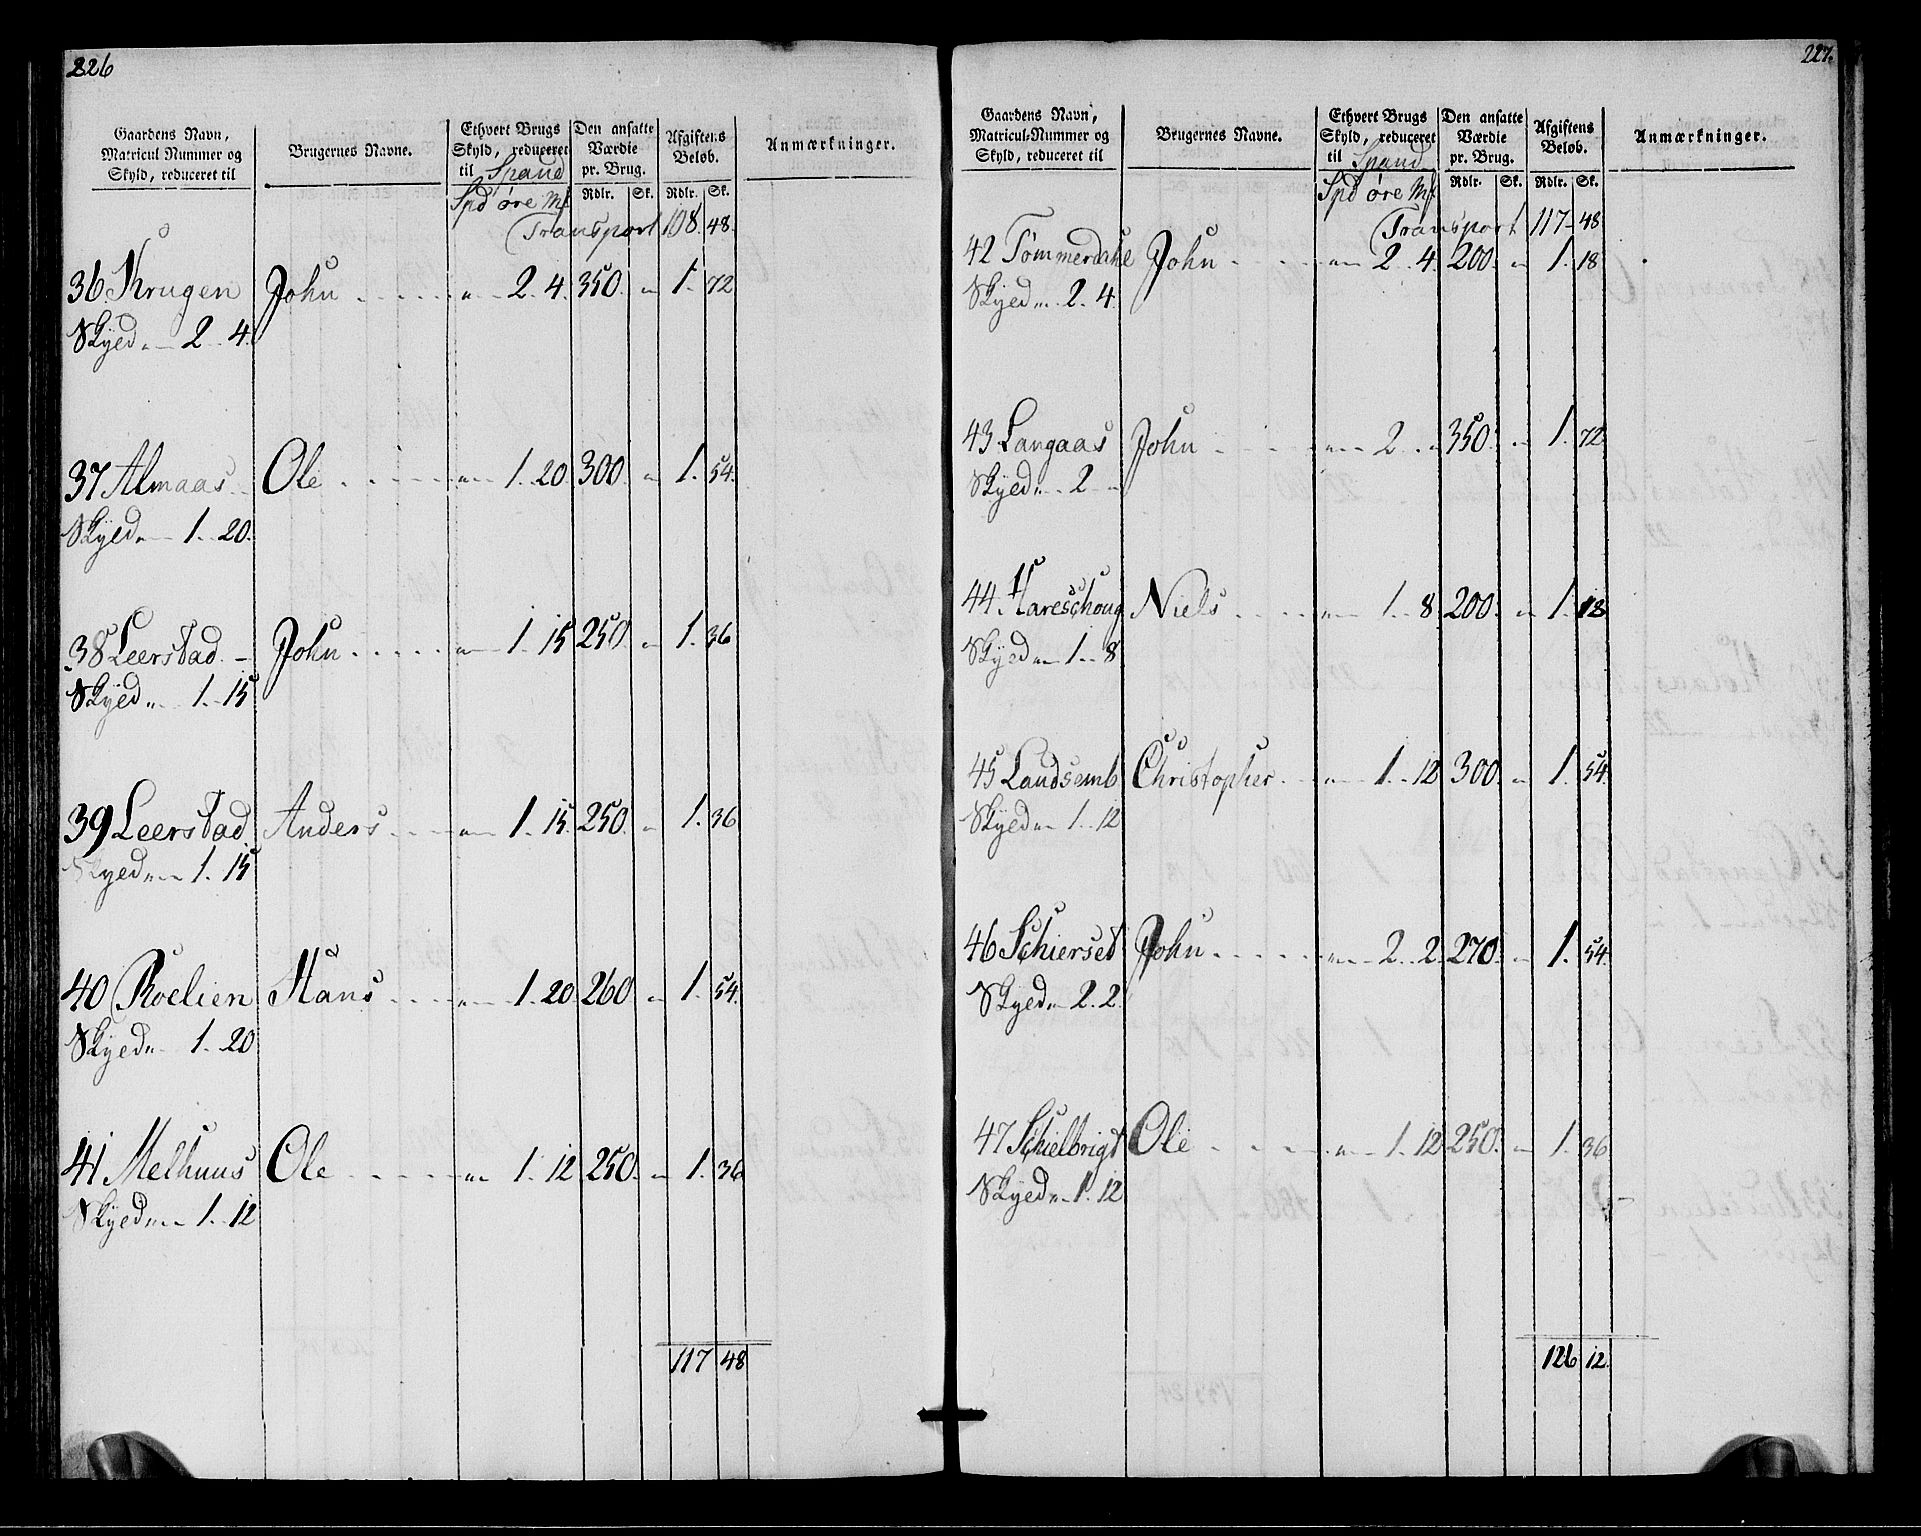 226
Gaardens Navn, Matricul Nummer og Skyld, reduceret til
Brugernes Navne.
Ethvert Brugs Skyld, reduceret til Spand
Spd øre Mk
Den ansatte Værdie pr. Brug.
Rdlr. Sk.
Afgiftens Beløb.
Rdlr. Sk.
Anmærkninger.
Transport 108. 48.
36. Krugen John . . . „ 2. 4. 350. „ 1. 72
Skyed „ 2. 4.
37 Almaas Ole . . . „ 1. 20 300 „ 1. 54.
Skyed „ 1. 20.
38 Leerstad John . . . „ 1. 15 250 „ 1. 36
Skyed „ 1. 15
39 Leerstad Anders . . . „ 1. 15. 250. „ 1. 36
Skyed „ 1. 15
40 Roelien Hans . . . „ 1. 20 260 „ 1. 54.
Skyed „ 1. 20
41 Melhuus Ole . . . „ 1. 12 250. „ 1. 36
Skyed „ 1. 12
117 48
227.
Gaardens Navn, Matricul-Nummer og Skyld, reduceret til
Brugernes Navne.
Ethvert Brugs Skyld, reduceret til Spand
Spd øre Mk
Den ansatte Værdie pr. Brug.
Rdlr. Sk.
Afgiftens Beløb.
Rdlr. Sk.
Anmærkninger.
Transport 117 48
42 Tømmerdahl John . . . „ 2. 4. 200. „ 1. 18
Skyed „ 2. 4.
43 Langaas John . . . „ 2 „ 350. „ 1. 72
Skyed „ 2 „
44. Hareschoug Niels . . . „ 1. 8 200. „ 1. 18
Skyed „ 1. 8
45 Landsemb Christopher . „ 1. 12 300. „ 1. 54.
Skyed „ 1. 12
46 Schierset John . . . „ 2. 2. 270. „ 1. 54.
Skyed „ 2. 2.
47 Schielbrigt Ole . . . „ 1. 12 250. „ 1. 36
Skyed „ 1. 12
126 12.